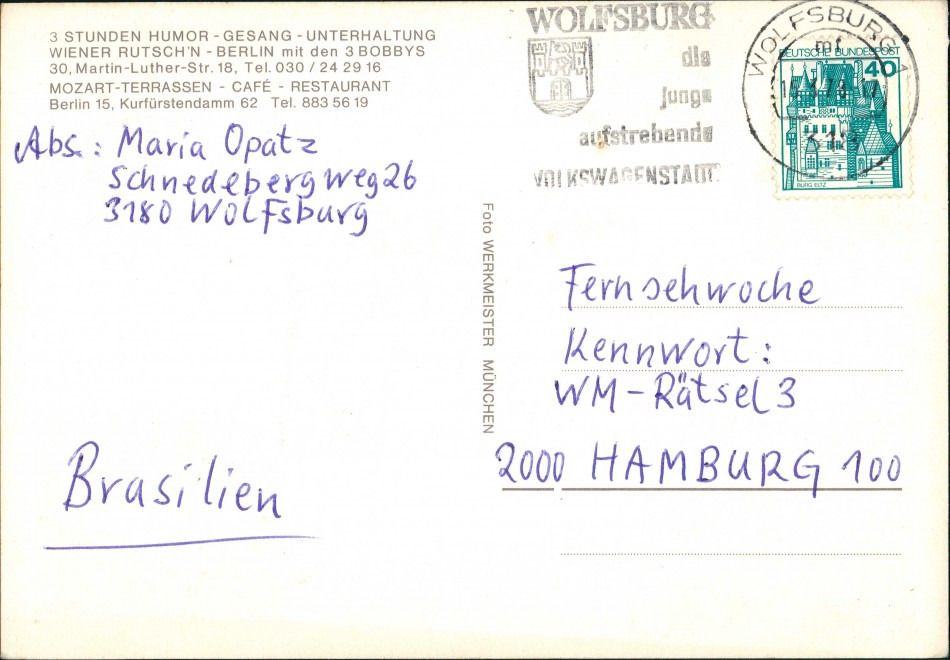 3 STUNDEN HUMOR - GESANG - UNTERHALTUNG
WIENER RUTSCH'N - BERLIN mit den 3 BOBBYS
30, Martin-Luther-Str. 18, Tel. 030 / 24 29 16
MOZART-TERRASSEN - CAFÉ - RESTAURANT
Berlin 15, Kurfürstendamm 62 Tel. 883 56 19
Abs.: Maria Opatz
Schnedebergweg 26
3180 Wolfsburg
Brasilien
Foto WERKMEISTER MÜNCHEN
WOLFSBURG
die
junge
aufstrebende
VOLKSWAGENSTADT
WOLFSBURG 1
mf
DEUTSCHE BUNDESPOST
40
BURG ELTZ
Fernsehwoche
Kennwort:
WM-Rätsel 3
2000 HAMBURG 100